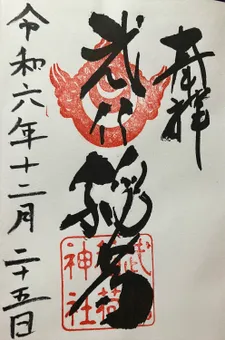 奉拝
武
令和六年十二月二十五日
武
稲荷
神社